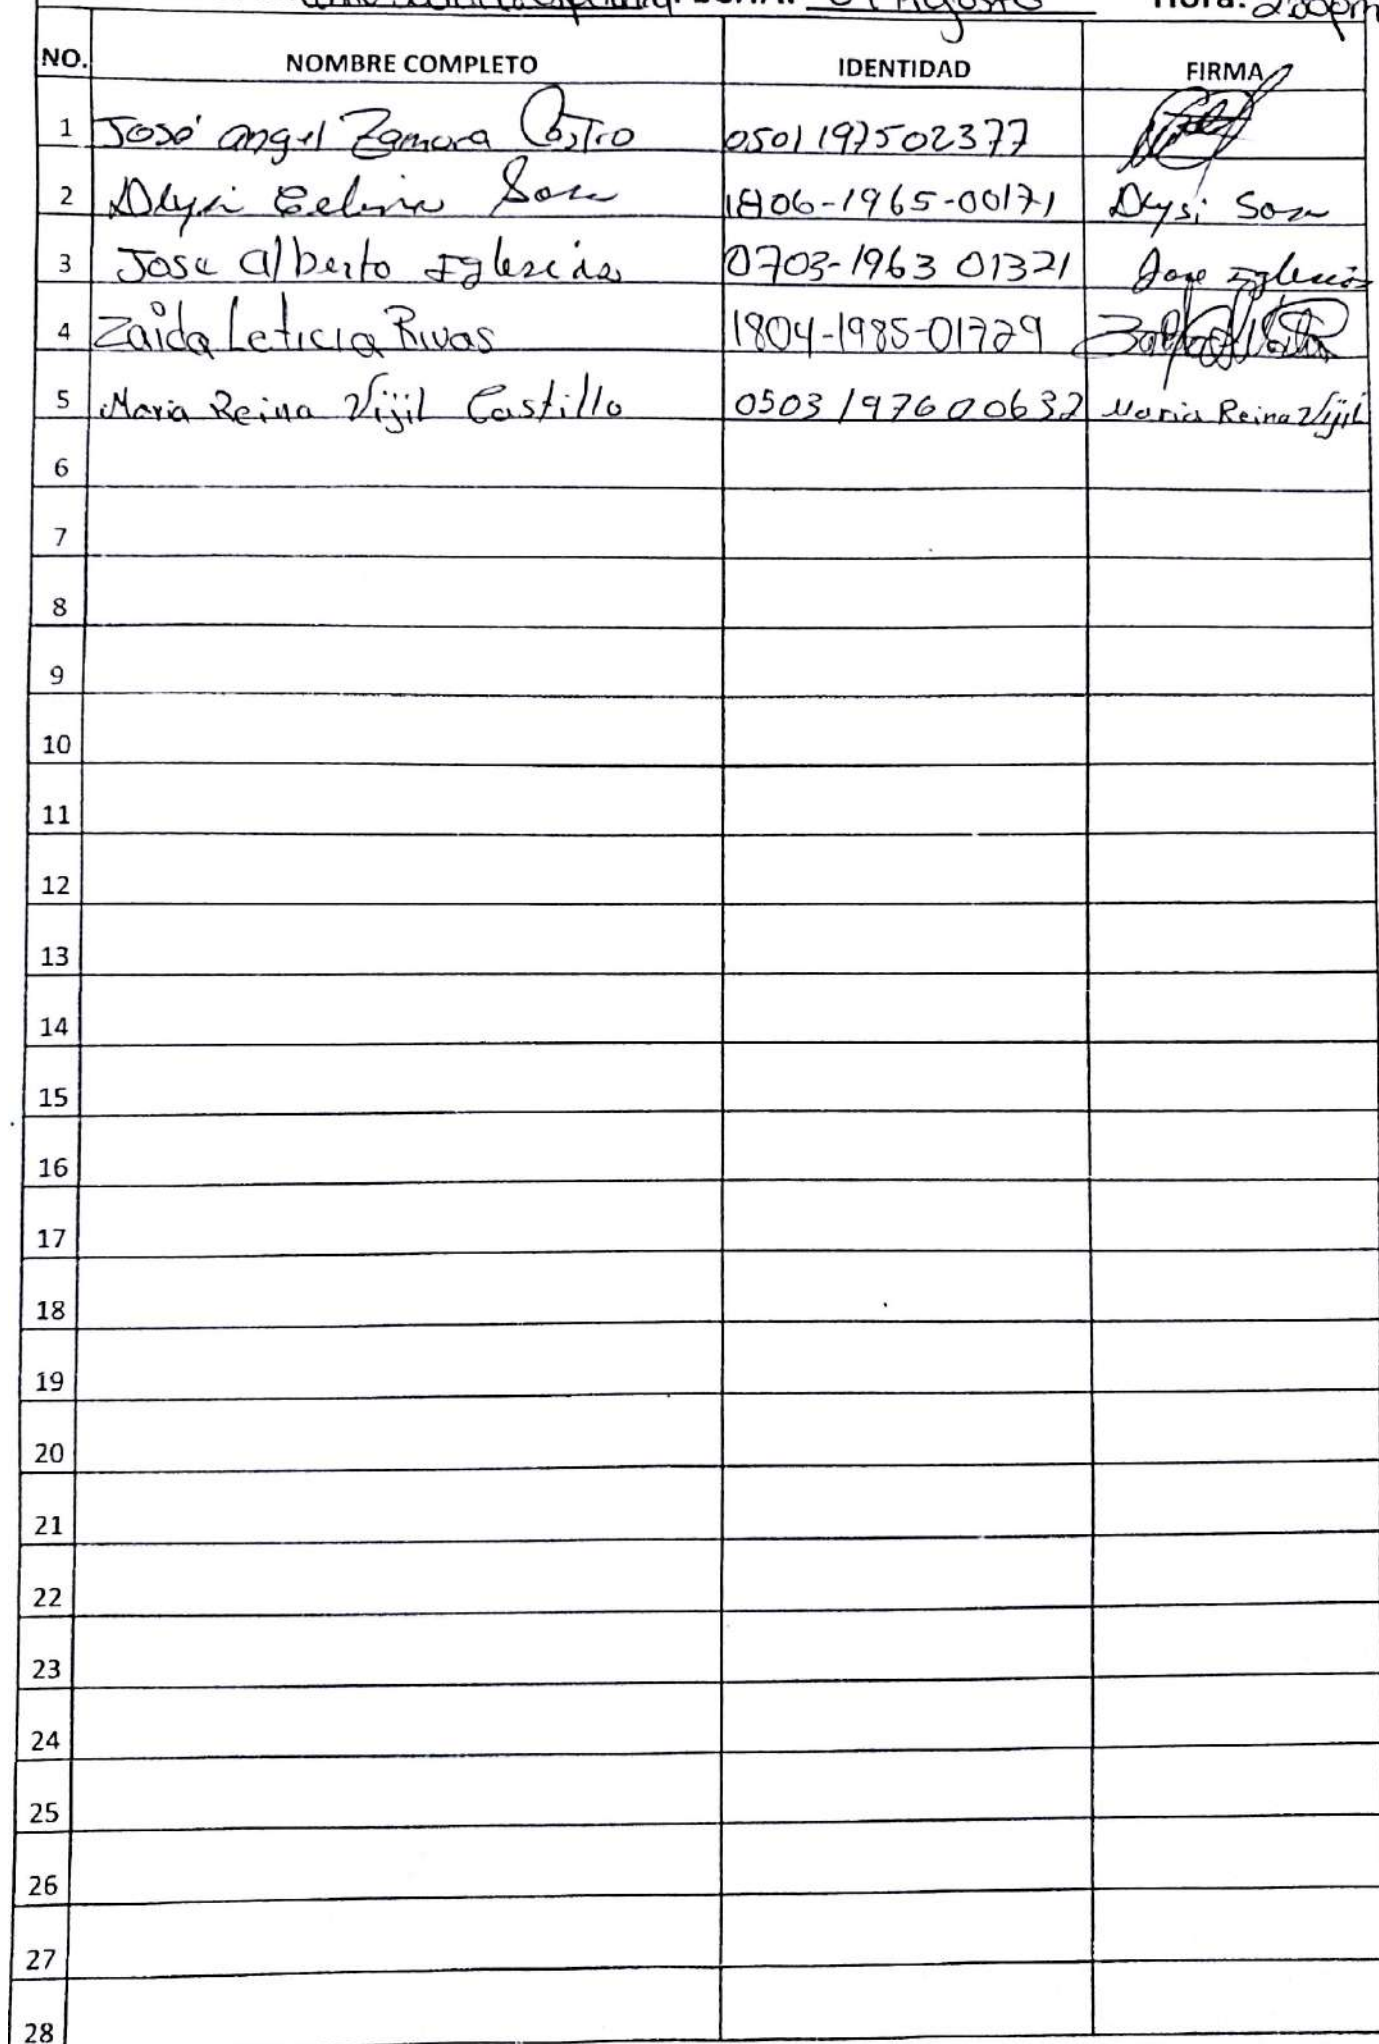 Agosto Hora: 2:00pm
NO. NOMBRE COMPLETO IDENTIDAD FIRMA
1 José angel Zamora Castro 0501197502377
2 Deysi Celina Sosa 1806-1965-00171 Deysi Sosa
3 Jose Alberto Iglesias 0703-1963 01321 Jose Iglesias
4 Zaida Leticia Rivas 1804-1985-01729
5 Maria Reina Vijil Castillo 0503197600632 Maria Reina Vijil
6
7
8
9
10
11
12
13
14
15
16
17
18
19
20
21
22
23
24
25
26
27
28